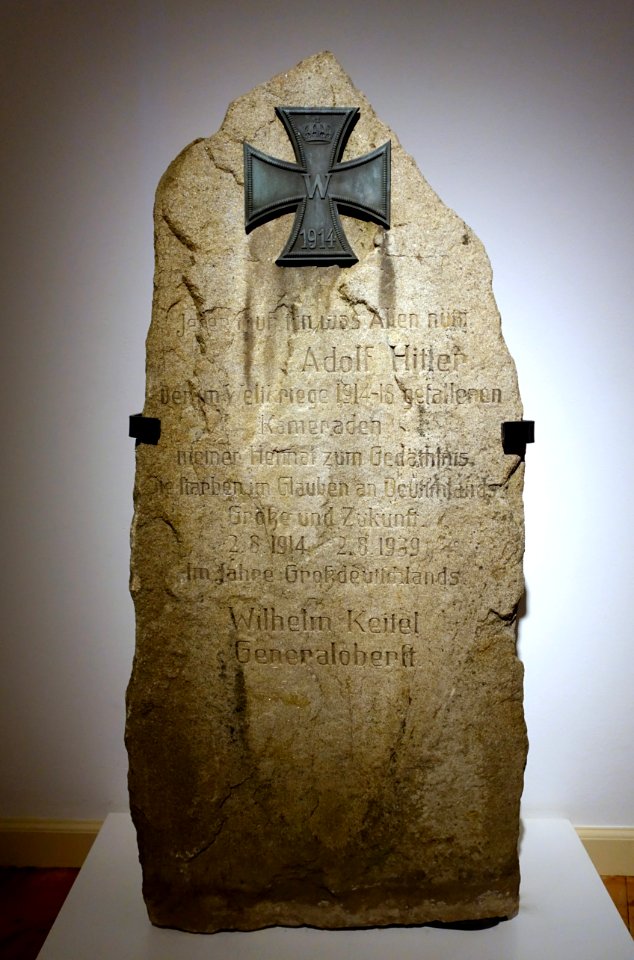 W
1914
was Allen
Adolf Hitler
Den im Weltkriege 1914-18 gefallenen
Kameraden
meiner Heimat zum Gedächtnis.
Sie starben im Glauben an Deutschlands
Größe und Zukunft.
2.8.1914 - 2.8.1939
Im Jahre Großdeutschlands
Wilhelm Keitel
Generaloberst